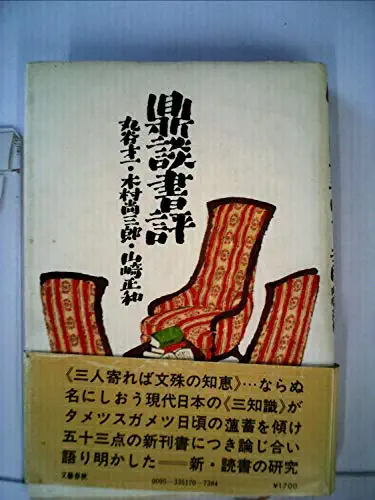 鼎談書評
丸谷才一・木村尚三郎・山崎正和
《三人寄れば文殊の知恵》…ならぬ
名にしおう現代日本の《三知識》が
タメツスガメツ日頃の蘊蓄を傾け
五十三点の新刊書につき論じ合い
語り明かした――新・読書の研究
文藝春秋
0095-335170-7384
¥1700